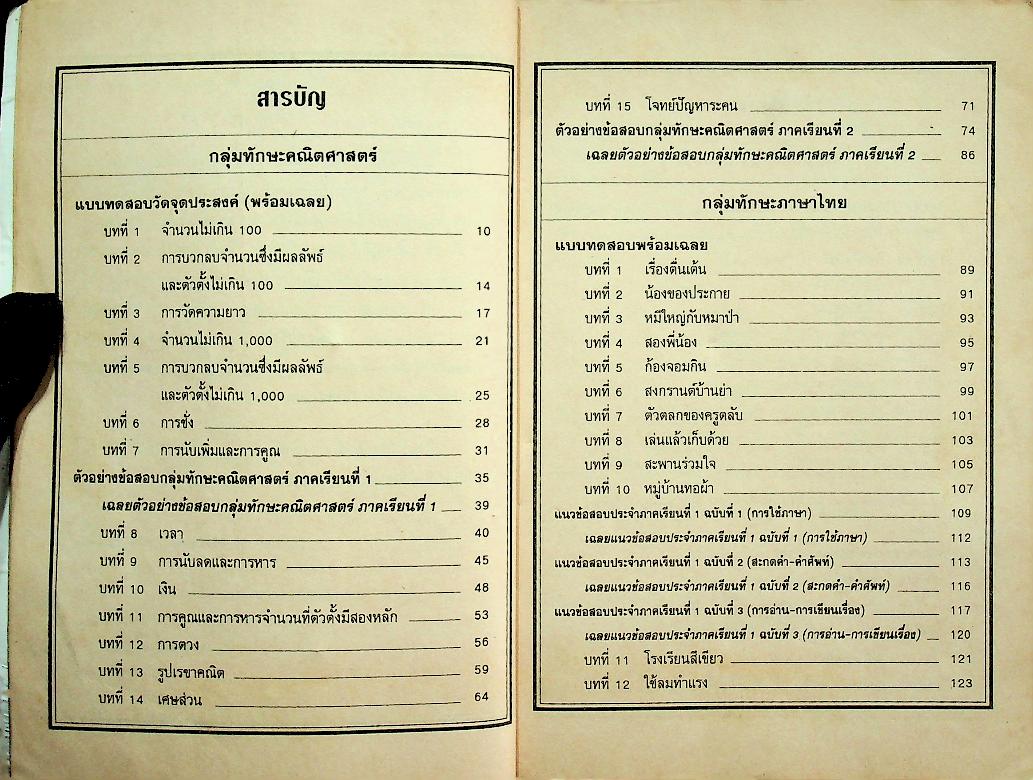 สารบัญ
กลุ่มทักษะคณิตศาสตร์
แบบทดสอบวัดจุดประสงค์ (พร้อมเฉลย)
บทที่ 1 จำนวนไม่เกิน 100 10
บทที่ 2 การบวกลบจำนวนซึ่งมีผลลัพธ์
และตัวตั้งไม่เกิน 100 14
บทที่ 3 การวัดความยาว 17
บทที่ 4 จำนวนไม่เกิน 1,000 21
บทที่ 5 การบวกลบจำนวนซึ่งมีผลลัพธ์
และตัวตั้งไม่เกิน 1,000 25
บทที่ 6 การชั่ง 28
บทที่ 7 การนับเพิ่มและการคูณ 31
ตัวอย่างข้อสอบกลุ่มทักษะคณิตศาสตร์ ภาคเรียนที่ 1 35
เฉลยตัวอย่างข้อสอบกลุ่มทักษะคณิตศาสตร์ ภาคเรียนที่ 1 39
บทที่ 8 เวลา 40
บทที่ 9 การนับลดและการหาร 45
บทที่ 10 เงิน 48
บทที่ 11 การคูณและการหารจำนวนที่ตัวตั้งมีสองหลัก 53
บทที่ 12 การตวง 56
บทที่ 13 รูปเรขาคณิต 59
บทที่ 14 เศษส่วน 64
บทที่ 15 โจทย์ปัญหาระคน 71
ตัวอย่างข้อสอบกลุ่มทักษะคณิตศาสตร์ ภาคเรียนที่ 2 74
เฉลยตัวอย่างข้อสอบกลุ่มทักษะคณิตศาสตร์ ภาคเรียนที่ 2 86
กลุ่มทักษะภาษาไทย
แบบทดสอบพร้อมเฉลย
บทที่ 1 เรื่องตื่นเต้น 89
บทที่ 2 น้องของประกาย 91
บทที่ 3 หมีใหญ่กับหมาป่า 93
บทที่ 4 สองพี่น้อง 95
บทที่ 5 ก้องจอมกิน 97
บทที่ 6 สงกรานต์บ้านย่า 99
บทที่ 7 ตัวตลกของครูตลับ 101
บทที่ 8 เล่นแล้วเก็บด้วย 103
บทที่ 9 สะพานร่วมใจ 105
บทที่ 10 หมู่บ้านทอผ้า 107
แนวข้อสอบประจำภาคเรียนที่ 1 ฉบับที่ 1 (การใช้ภาษา) 109
เฉลยแนวข้อสอบประจำภาคเรียนที่ 1 ฉบับที่ 1 (การใช้ภาษา) 112
แนวข้อสอบประจำภาคเรียนที่ 1 ฉบับที่ 2 (สะกดคำ-คำศัพท์) 113
เฉลยแนวข้อสอบประจำภาคเรียนที่ 1 ฉบับที่ 2 (สะกดคำ-คำศัพท์) 116
แนวข้อสอบประจำภาคเรียนที่ 1 ฉบับที่ 3 (การอ่าน-การเขียนเรื่อง) 117
เฉลยแนวข้อสอบประจำภาคเรียนที่ 1 ฉบับที่ 3 (การอ่าน-การเขียนเรื่อง) 120
บทที่ 11 โรงเรียนสีเขียว 121
บทที่ 12 ใช้ลมทำแรง 123